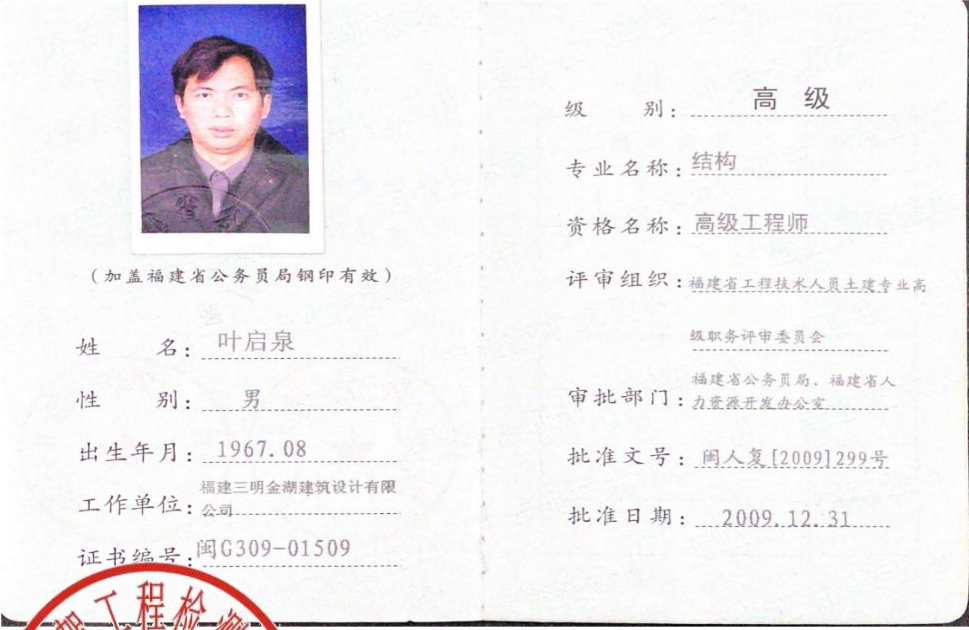 (加盖福建省公务员局钢印有效)
姓 名: 叶启泉
性 别: 男
出生年月: 1967.08
工作单位: 福建三明金湖建筑设计有限
公司
证书编号: 闽G309-01509
工程检测
级 别: 高 级
专业名称: 结构
资格名称: 高级工程师
评审组织: 福建省工程技术人员土建专业高
级职务评审委员会
审批部门: 福建省公务员局、福建省人
力资源开发办公室
批准文号: 闽人复[2009]299号
批准日期: 2009.12.31